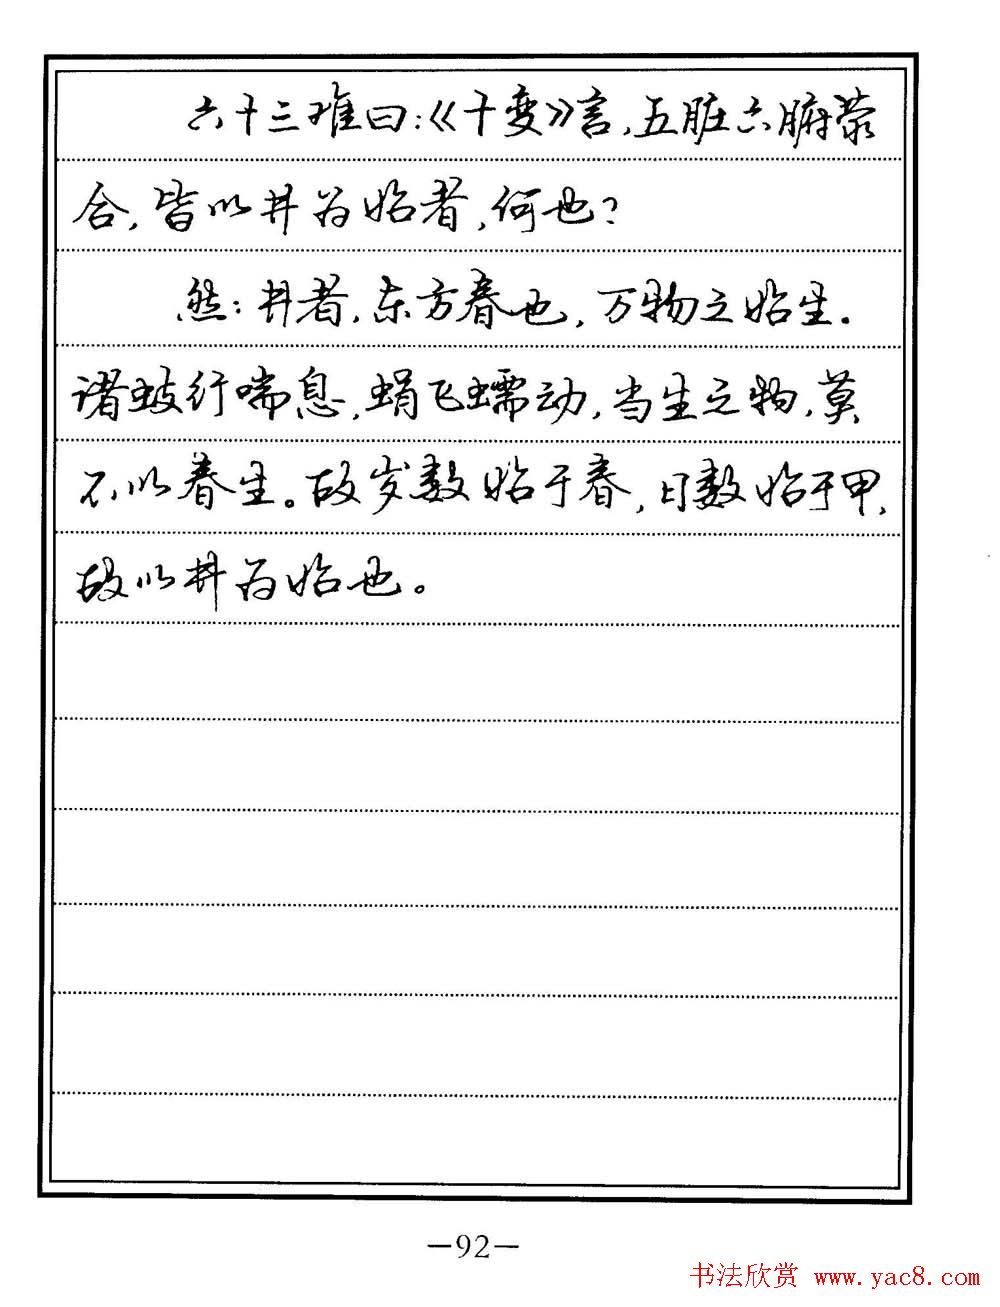 六十三难曰：《十变》言，五脏六腑荥
合，皆以井为始者，何也？
然：井者，东方春也，万物之始生。
诸蚑行喘息，蜎飞蠕动，当生之物，莫
不以春生。故岁数始于春，日数始于甲，
故以井为始也。
—92—
书法欣赏 www.yac8.com